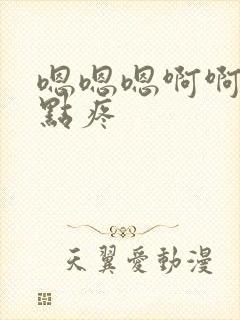 嗯嗯嗯啊啊
點疼
天翼愛動漫